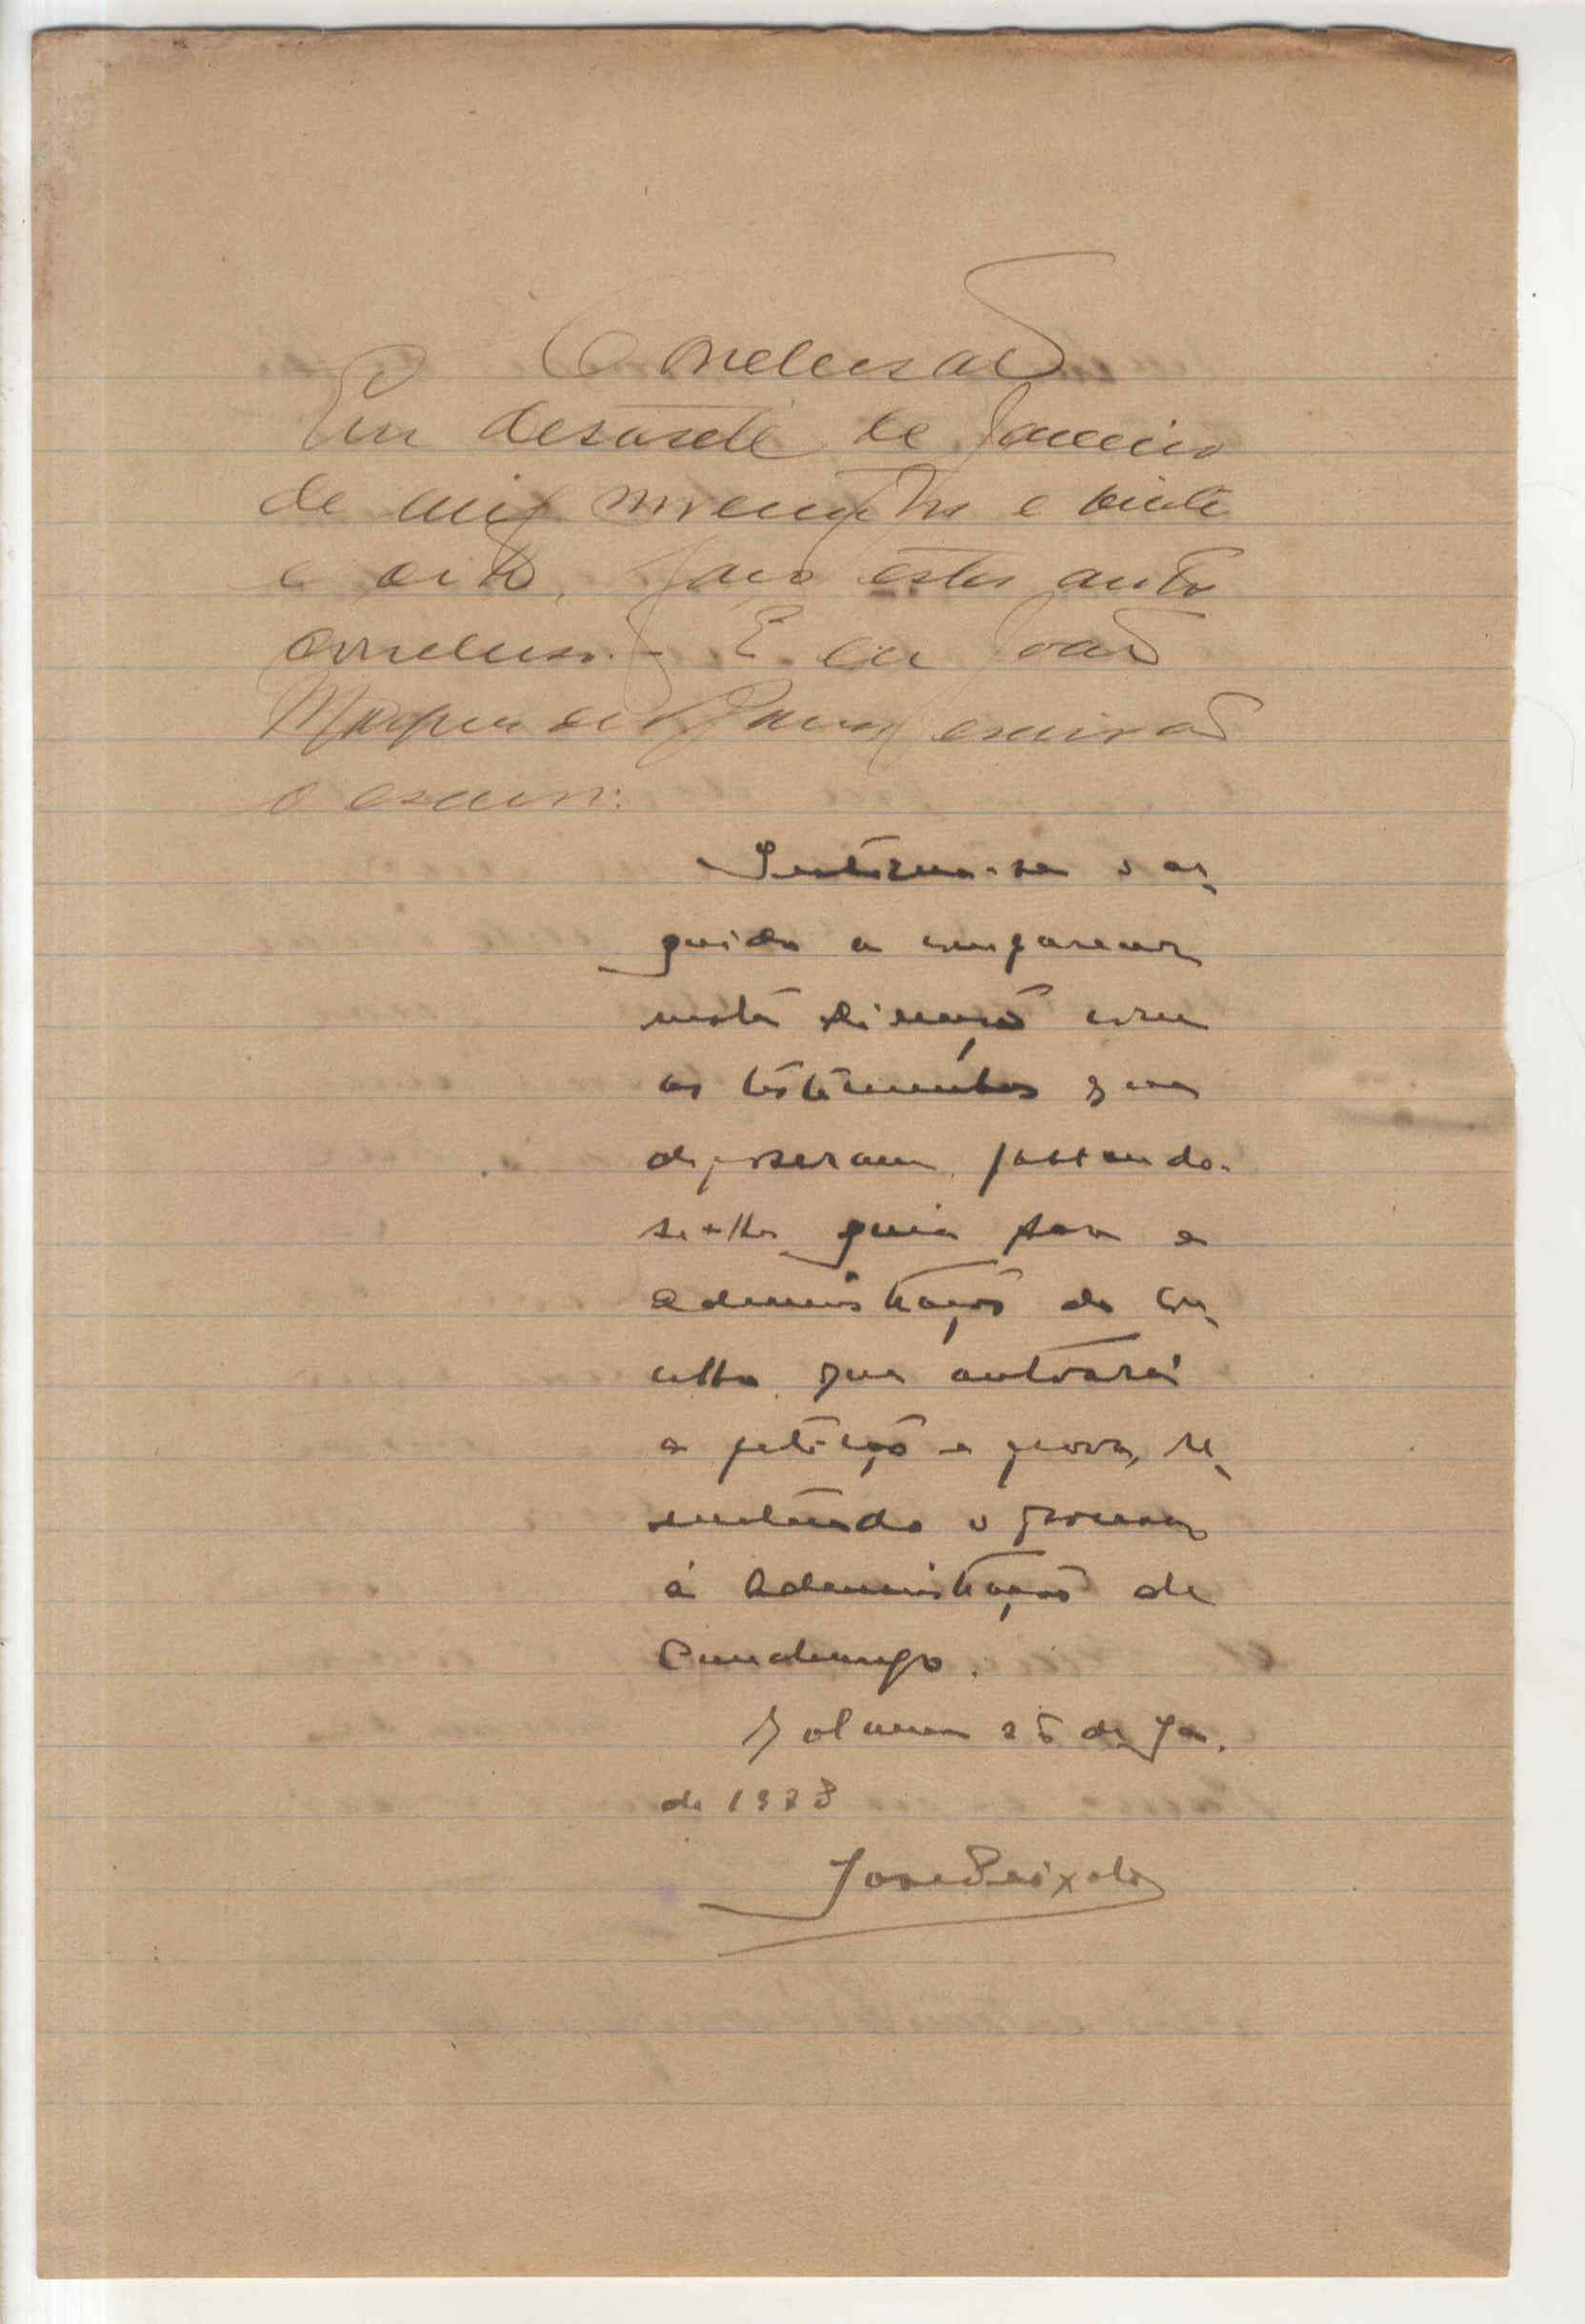 Conclusão
Em desasete de Janeiro
de mil novecentos e vinte
e oito, faço estes autos
conclusos. E eu João
Marques de escrivão
o escrevi:
Intime-se o ar-
guido a comparecer
nesta Direcção com
as testemunhas que
depozeram, passando-
se-lhe guia para a
Administração do
que autoará
a petição e prova, re-
metendo o processo
á Administração de
25 de Jan.
de 1928
José Peixoto